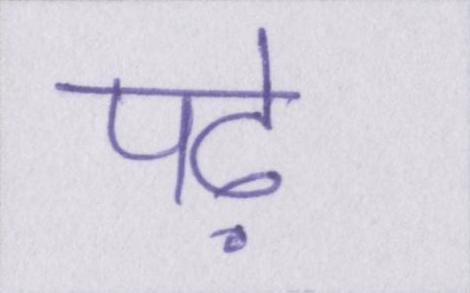 पढ़े